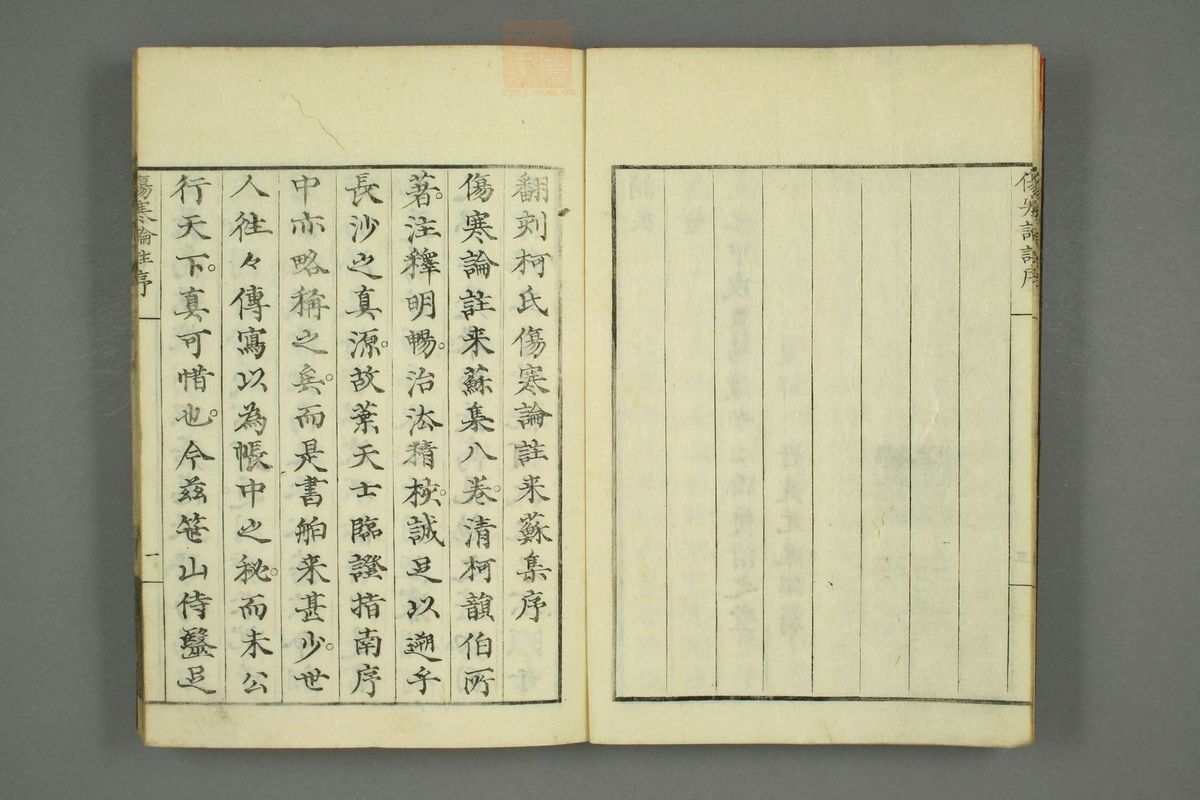 傷寒論註序
三
翻刻柯氏傷寒論註来蘇集序
傷寒論註来蘇集八卷。清柯韻伯所
著。注釋明暢。治法精核。誠足以遡乎
長沙之真源。故葉天士臨證指南序
中亦略稱之矣。而是書舶来甚少。世
人往々傳寫以為帳中之秘。而未公
行天下。真可惜也。今茲笹山侍毉足
傷寒論註序
一
zysj.com.cn